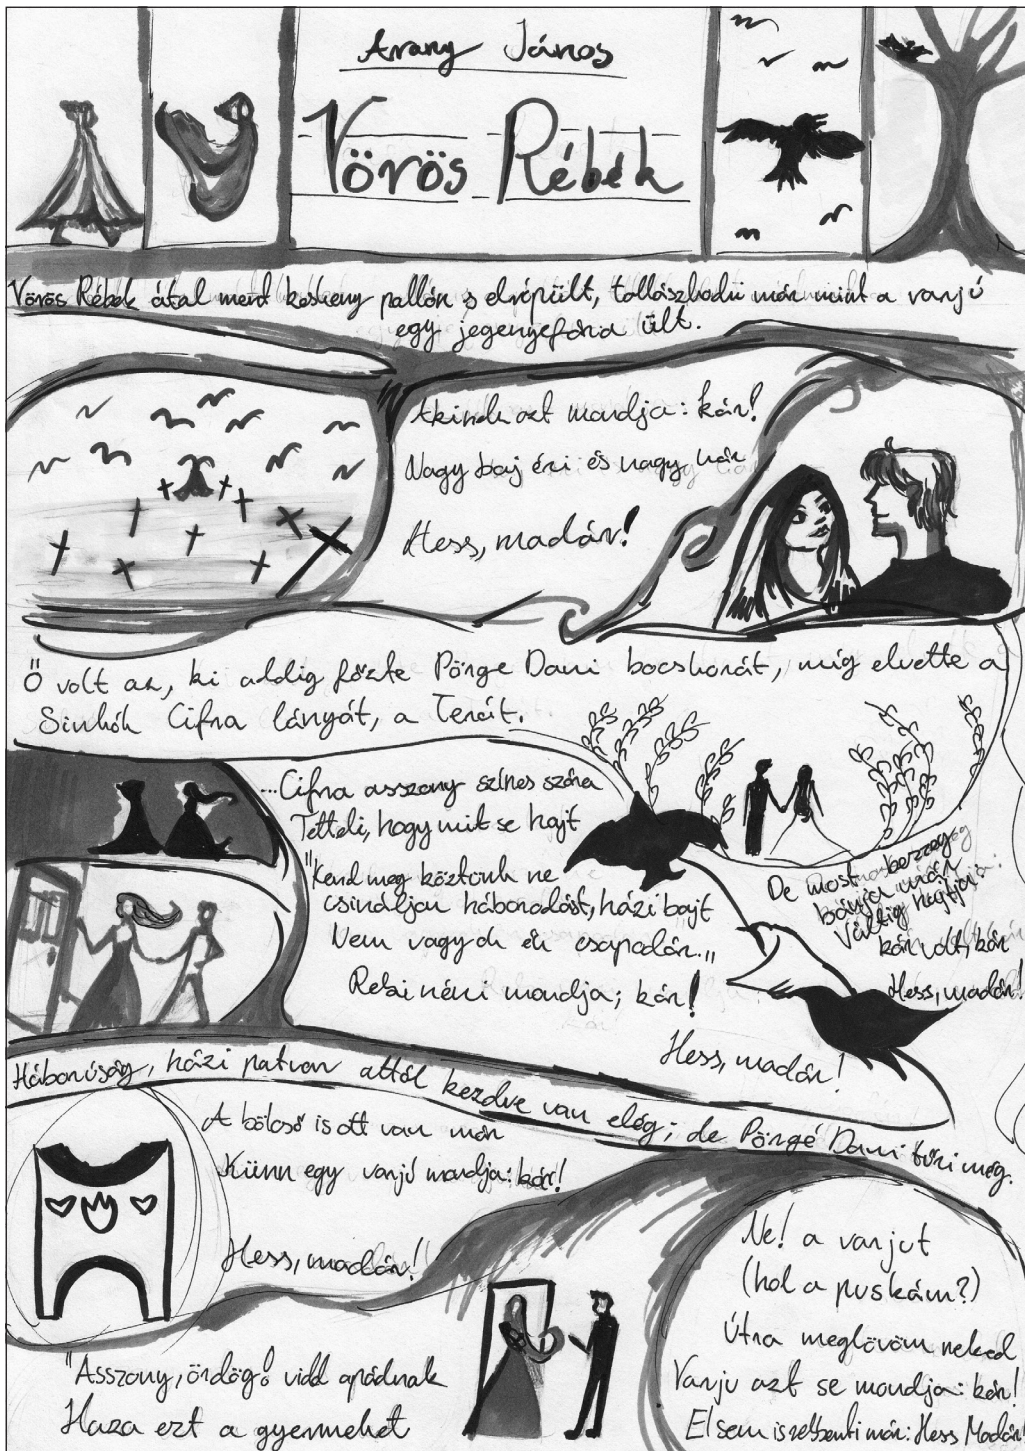 Arany János
Vörös Rébék
Vörös Rébék által ment keskeny pallón s elröpült, tollászkodni már mint a varjú
egy jegenyefára ült.
Akinek azt mondja: kár!
Nagy baj éri és nagy kár
Hess, madár!
Ő volt az, ki addig főzte Pörge Dani bocskorát, míg elvette a
Sinkók Cifra lányát, a Terát.
De most
bánja már
Váltig hajtja:
kár volt, kár
Hess, madár!
...Cifra asszony színes szóra
Tetteti, hogy mit se hajt
"Kend meg köztünk ne
csináljon háborodást, házi bajt
Nem vagyok én csapodár..."
Rebi néni mondja; kár!
Hess, madár!
Háborúság, házi patvar attól kezdve van elég; de Pörge Dani tűri még.
A bölcső is ott van már
Künn egy varjú mondja: kár!
Hess, madár!
"Asszony, ördög! vidd apádnak
Haza ezt a gyermeket
Ne! a varjut
(hol a puskám?)
Útra meglövöm neked
Varju azt se mondja: kár!
El sem is rebbenti már: Hess Madár!